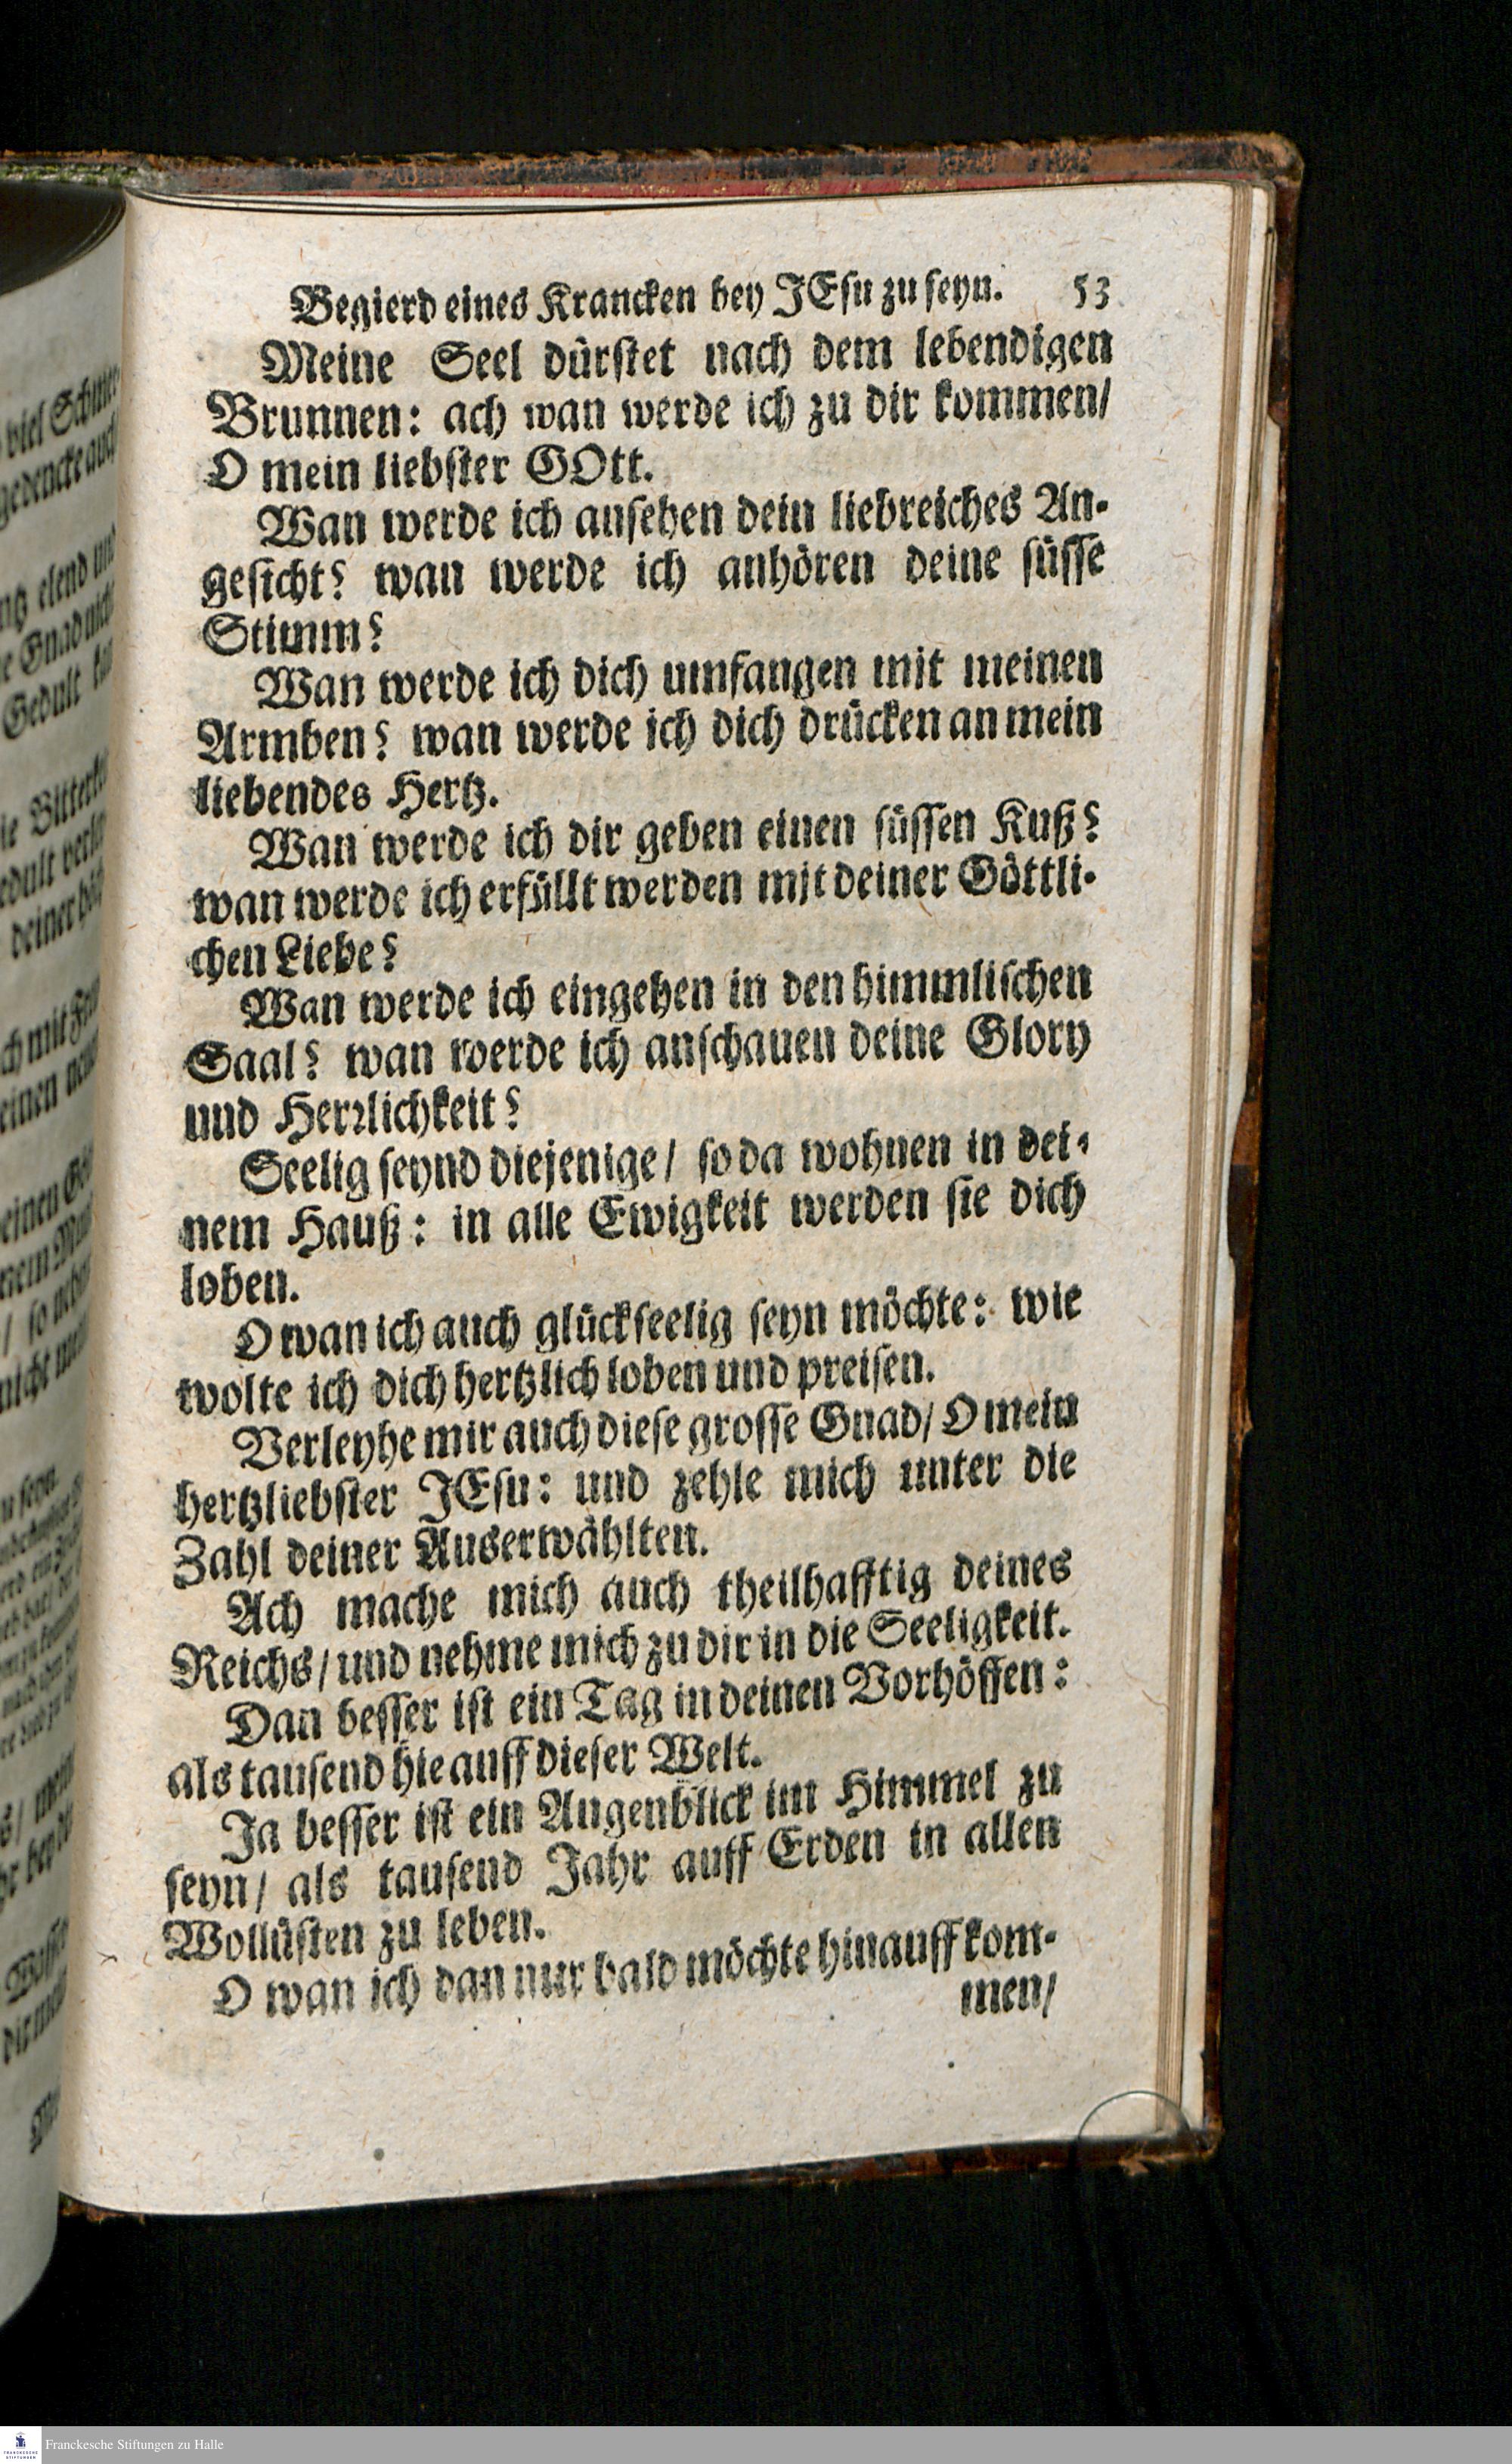 Begierd eines Krancken bey JEsu zu seyn. 53
Meine Seel dürstet nach dem lebendigen
Brunnen: ach wan werde ich zu dir kommen/
O mein liebster GOtt.
Wan werde ich ansehen dein liebreiches An-
gesicht? wan werde ich anhören deine süsse
Stimm?
Wan werde ich dich umfangen mit meinen
Armben? wan werde ich dich drücken an mein
liebendes Hertz.
Wan werde ich dir geben einen süssen Kuß?
wan werde ich erfüllt werden mit deiner Göttli-
chen Liebe?
Wan werde ich eingehen in den himmlischen
Saal? wan werde ich anschauen deine Glory
und Herrlichkeit?
Seelig seynd diejenige/ so da wohnen in dei-
nem Hauß: in alle Ewigkeit werden sie dich
loben.
O wan ich auch glückseelig seyn möchte: wie
wolte ich dich hertzlich loben und preisen.
Verleyhe mir auch diese grosse Gnad/ O mein
hertzliebster JEsu: und zehle mich unter die
Zahl deiner Auserwählten.
Ach mache mich auch theilhafftig deines
Reichs/ und nehme mich zu dir in die Seeligkeit.
Dan besser ist ein Tag in deinen Vorhöffen:
als tausend hie auff dieser Welt.
Ja besser ist ein Augenblick im Himmel zu
seyn/ als tausend Jahr auff Erden in allen
Wollüsten zu leben.
O wan ich dan nur bald möchte hinauff kom-
men/
Franckesche Stiftungen zu Halle